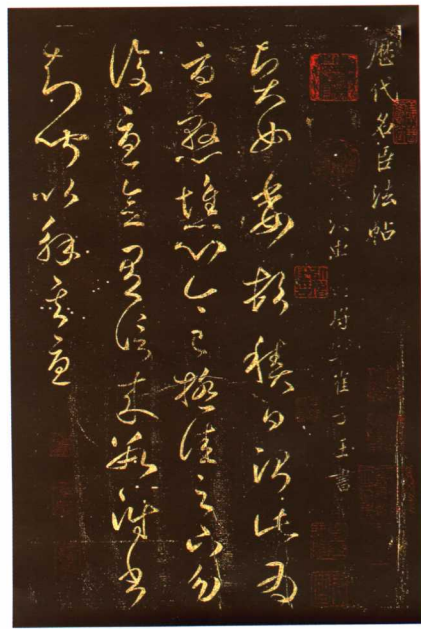 歷代名臣法帖
崔子玉書
賢女委頓積日治此為
憂懸憔心今已極佳足下勿
復憂念有信來數附書
知聞以解其憂